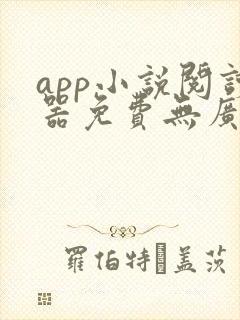 app小說閱讀
器免費無廣
羅伯特盖茨